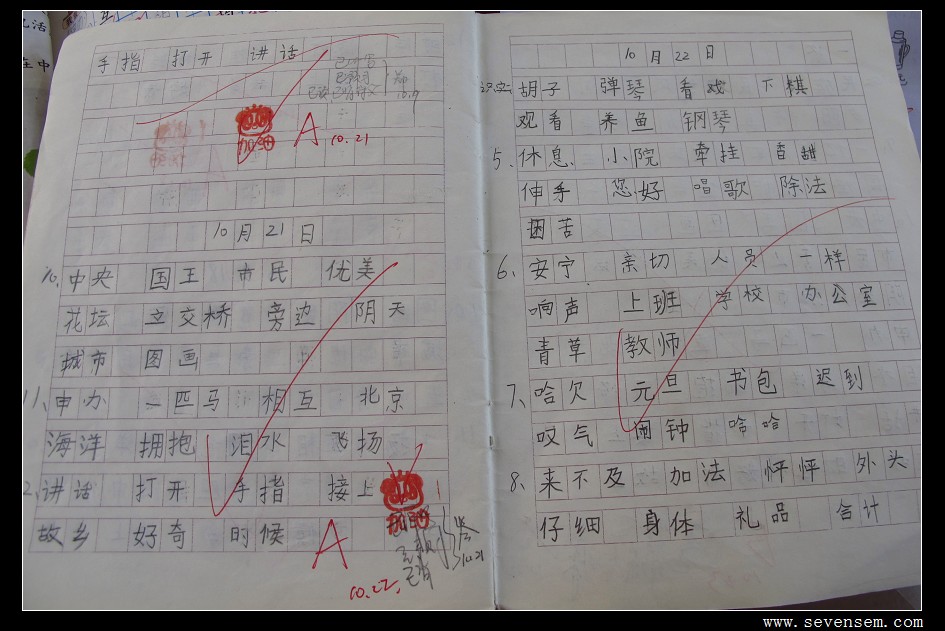 手指 打开 讲话
A 10.21
10月21日
10、中央 国王 市民 优美
花坛 立交桥 旁边 阴天
城市 图画
11、申办 一匹马 相互 北京
海洋 拥抱 泪水 飞扬
2、讲话 打开 手指 接上
故乡 好奇 时候
A
10.22.
10月22日
识字 胡子 弹琴 看戏 下棋
观看 养鱼 钢琴
5、休息 小院 牵挂 香甜
伸手 您好 唱歌 除法
困苦
6、安宁 亲切 人员 一样
响声 上班 学校 办公室
青草 教师
7、哈欠 元旦 书包 迟到
叹气 闹钟 哈哈
8、来不及 加法 怦怦 外头
仔细 身体 礼品 合计
www.sevensem.com